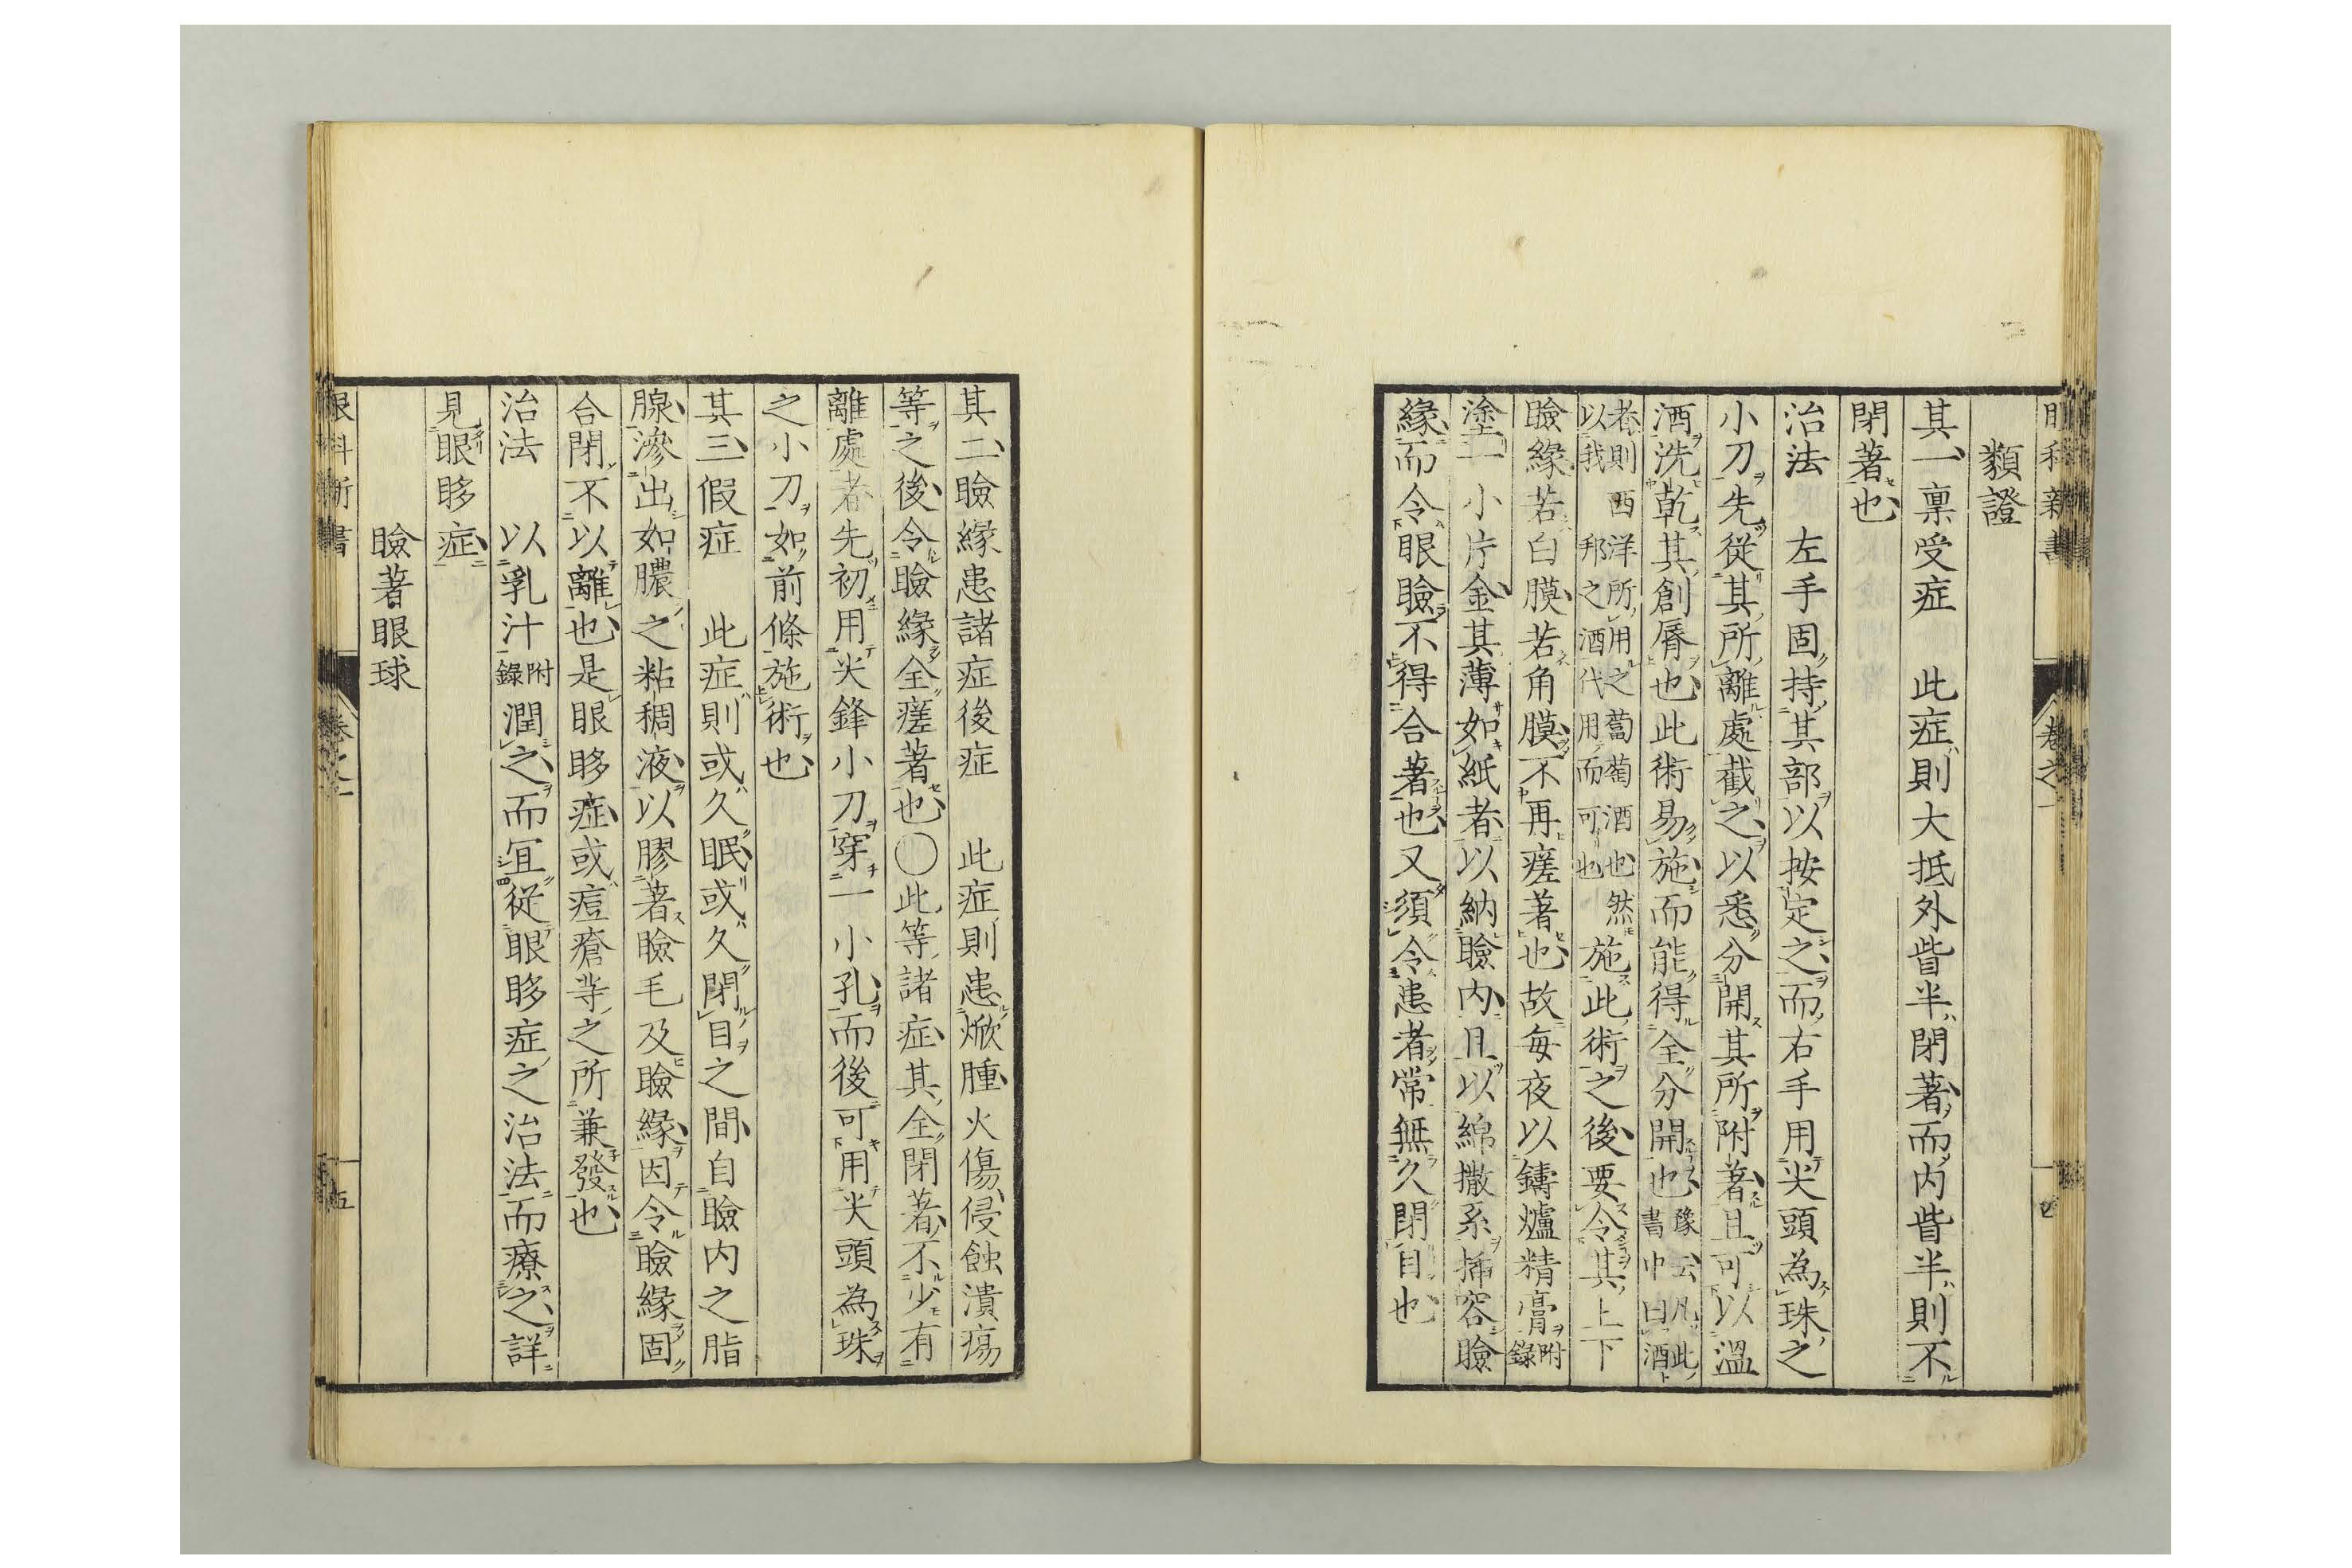 眼科新書
卷之一
類證
其一稟受症　此症則大抵外眥半閉著而內眥半則不
閉著也
治法　左手固持其部以按定之而右手用尖頭為珠之
小刀先從其所離處截之以悉分開其所附著且可以溫
酒洗乾其創脣也此術易施而能得全分開也豫云凡此書中曰酒
者則西洋所用之葡萄酒也然以我邦之酒代用而可也施此術之後要令其上下
瞼緣若白膜若角膜不再癒著也故每夜以鑄爐精膏附錄
塗一小片金其薄如紙者以納瞼內且以綿撒系插容瞼
緣而令眼瞼不得合著也又須令患者常無久閉目也
其二瞼緣患諸症後症　此症則患焮腫火傷侵蝕潰瘍
等之後令瞼緣全癒著也〇此等諸症其全閉著不少有
離處者先初用尖鋒小刀穿一小孔而後可用尖頭為珠
之小刀如前條施術也
其三假症　此症則或久眠或久閉目之間自瞼內之脂
腺滲出如膿之粘稠液以膠著瞼毛及瞼緣因令瞼緣固
合閉不以離也是眼眵症或痘瘡等之所兼發也
治法　以乳汁附錄潤之而宜從眼眵症之治法而療之詳
見眼眵症
瞼著眼球
眼科新書
卷之一
五